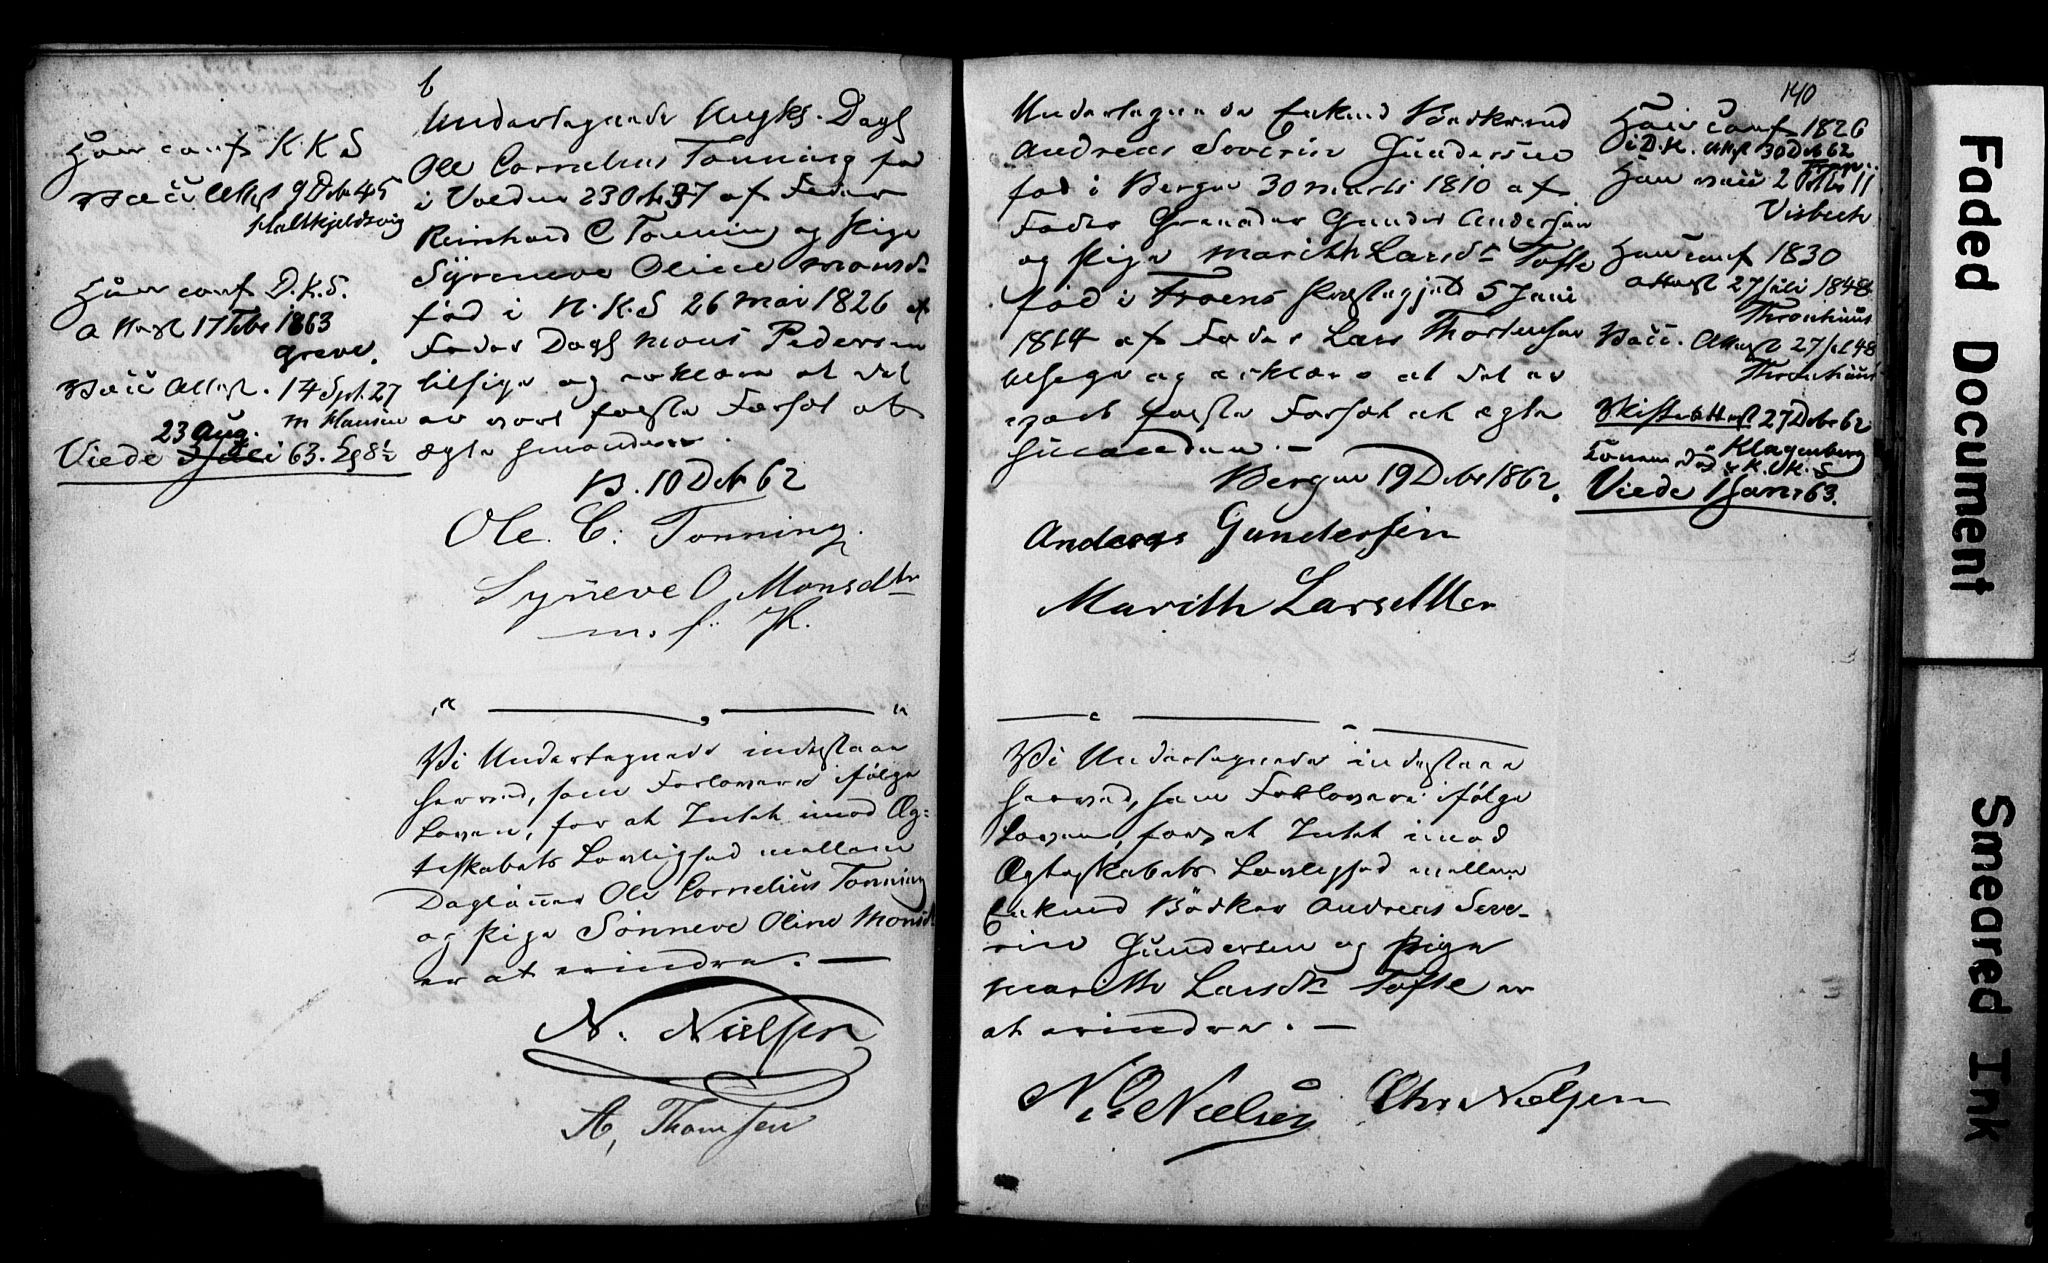 b
Undertegnede Ungks. Dagl
Ole Cornelius Tonning fød
i Volden 23 Oct 37 af Fader
Reinhard C Tonning og Pige
Syneve Oline Monsdr
fød i N.K.S 26 Mai 1826 af
Fader Dagl Mons Pedersen
tilsige og erklære at det
er vort faste Forsæt at
ægte hinanden.
B. 10 Debr 62
Ole. C. Tonning.
Syneve O Monsdtr
m. f. P.
Han conf K.K.S
Vacc Attest 9 Debr 45
Hallkjeldsvig
Hun conf D.K.S.
Attest 17 Febr 1863
Greve.
Vacc Attest. 14 Sept. 27
M Hansen
23 Aug.
Viede 63. Lg 8½
Vi Undertegnede indestaae
herved, som Forlovere ifølge
Loven, for at Intet imod Æg-
teskabets Lovlighed mellem
Daglønner Ole Cornelius Tonning
og Pige Sønneve Oline Monsd
er at erindre. —
N. Nielsen
A, Thomsen
140
Undertegnede Enkemd Bødkersvd
Andreas Severin Gundersen
fød i Bergen 30 Marts 1810 af
Fader Grenader Gunder Andersen
og Pige Marith Larsdr Tofte
fød i Froens Præstegjeld 5 Juni
1814 af Fader Lars Thorstensen
tilsige og erklære at det er
vort faste Forsæt at ægte
hinanden. —
Bergen 19 Debr 1862.
Andreas Gundersen
Marith Larsdtter
Han conf 1826
i D.K. Attest 30 Debr 62
Han vacc 2 11
Visbech
Hun conf 1830
Attest 27 Juli 1848
Thronhuus
Vacc. Attest 27 Juli 48
Thronhuus
Skifteattest 27 Debr 62
Klagenberg
Konen død i K.K.S
Viede 1 Janr 63.
Vi Undertegnede indestaae
herved, som Forlovere ifølge
Loven, for at Intet imod
Ægteskabets Lovlighed mellem
Enkemd Bødker Andreas Seve-
rin Gundersen og Pige
Marith Larsdtr Tofte er
at erindre. —
N. O Nielsen Chr Nielsen
Faded Document
Smeared Ink